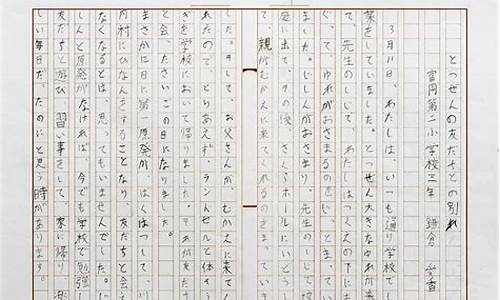 とつぜんの友だちとの別れ
富岡第二小学校三年
3月11日、わたしは、いつも通り学校で
業をしていました。とつぜん大きなゆれが来
て、先生のしじで、わたしはつくえの下に
ぐって、ゆれがおさまるのをじっとまってい
ました。じしんがおさまり、先生のしじで校
庭に出て、その後、さくらホールにいどう
て、親がむかえに来てくれるのをまっていま
た。そして、お父さんが、むかえに来てく
れたので、とりあえず、ランドセルと体そう
ぎを学校において帰りました。それが友だち
と会ったさいごの日になりました。
まさか12日に第一原発が、ばくはつして、川
内村にひなんをすることになり、友だちと会え
なくなるとは、思ってもいませんでした。じ
しんと原発がなければ、今でも学校で勉強し
友だちと遊び、習い事をして、家に帰り、楽
しい毎日だったのにと思う時があります。